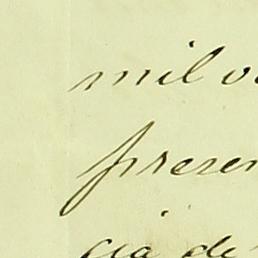 mil o
presen
cia de